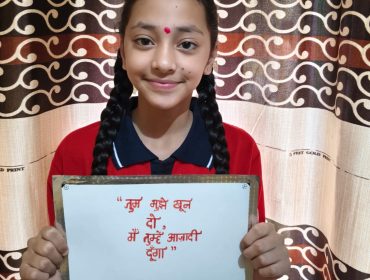 “ तुम मुझे खून
दो ,
मैं तुम्हें आजादी
दूँगा ”
GOLD PRINT
PRINT